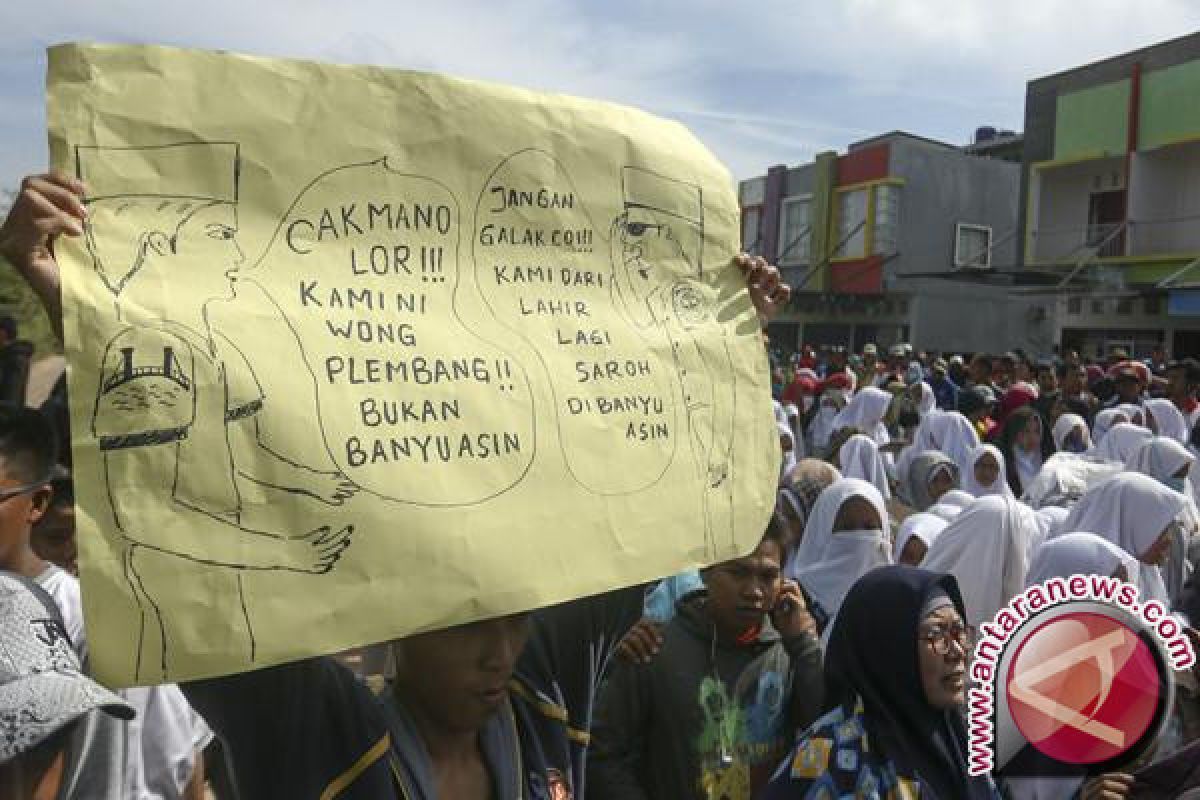 CAKMANO
LOR!!!
KAMI NI
WONG
PLEMBANG!!
BUKAN
BANYUASIN
JANGAN
GALAK COI!!!
KAMI DARI
LAHIR
LAGI
SAROH
DI BANYU
ASIN
www.antaranews.com